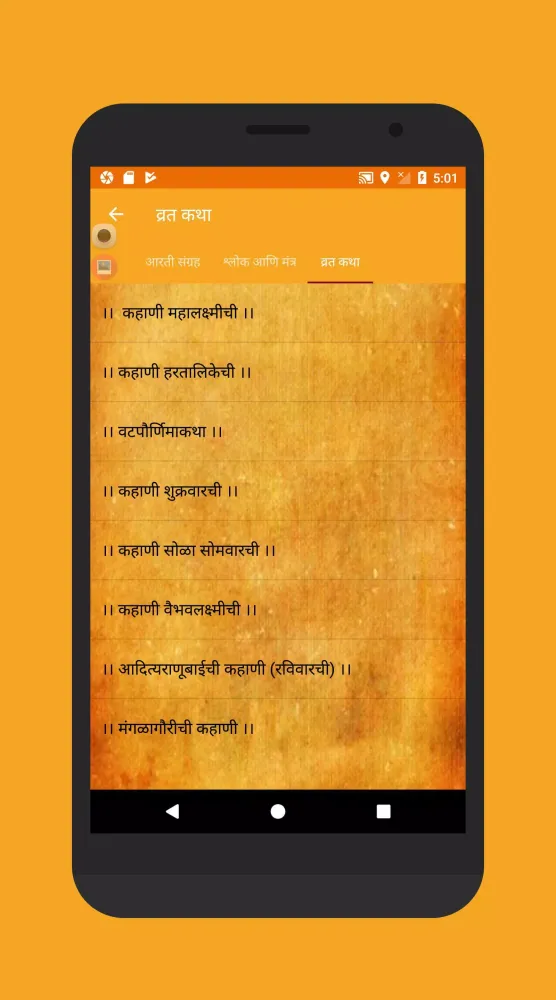 5:01
व्रत कथा
आरती संग्रह श्लोक आणि मंत्र व्रत कथा
।। कहाणी महालक्ष्मीची ।।
।। कहाणी हरतालिकेची ।।
।। वटपौर्णिमाकथा ।।
।। कहाणी शुक्रवारची ।।
।। कहाणी सोळा सोमवारची ।।
।। कहाणी वैभवलक्ष्मीची ।।
।। आदित्यराणूबाईची कहाणी (रविवारची) ।।
।। मंगळागौरीची कहाणी ।।